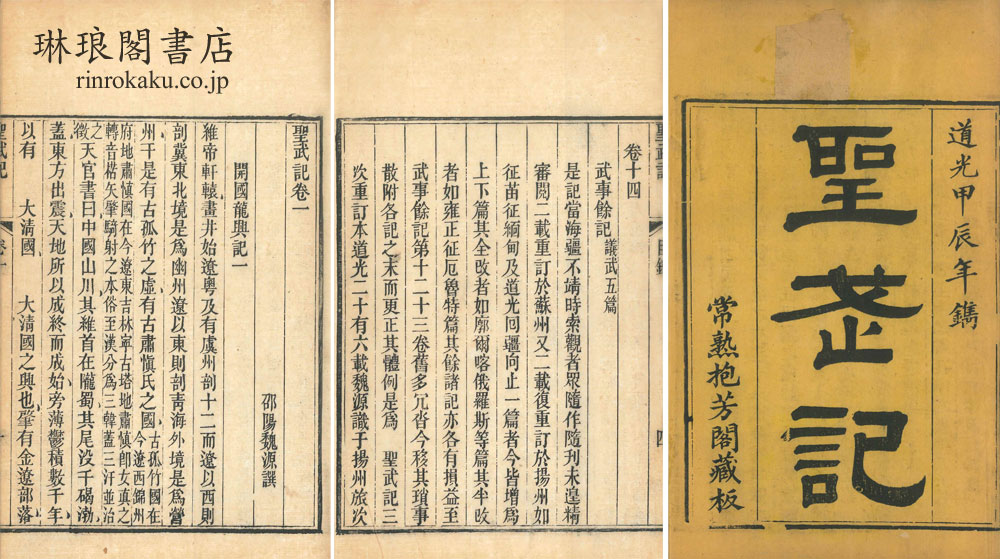 琳琅閣書店
rinrokaku.co.jp
道光甲辰年鐫
聖武記
常熟抱芳閣藏板
聖武記
目錄
四
卷十四
武事餘記 議武五篇
是記當海疆不靖時索觀者眾隨作隨刊未遑精
審閱二載重訂於蘇州又二載復重訂於揚州如
征苗征緬甸及道光回疆向止一篇者今皆增爲
上下篇其全改者如廓爾喀俄羅斯等篇其半改
者如雍正征厄魯特篇其餘諸記亦各有損益至
武事餘記第十二十三卷舊多冗沓今移其瑣事
散附各記之末而更正其體例是爲 聖武記三
次重訂本道光二十有六載魏源識于揚州旅次
聖武記卷一
邵陽魏源譔
開國龍興記一
維帝軒轅畫井始遼粵及有虞州剖十二而遼以西則
剖冀東北境是爲幽州遼以東則剖靑海外境是爲營
州于是有古孤竹之虛有古肅愼氏之國古孤竹國在
今遼西錦州
府地肅愼國在今遼東吉林寧古塔地肅愼卽女真之
轉音楛矢肇騎射之本俗至漢分爲三韓蓋三汗並治
之徵天官書曰中國山川其維首在隴蜀其尾没于碣渤
蓋東方出震天地所以成終而成始旁薄鬱積數千年
以有 大淸國 大淸國之興也肇有金遼部落
聖武記
卷一
一